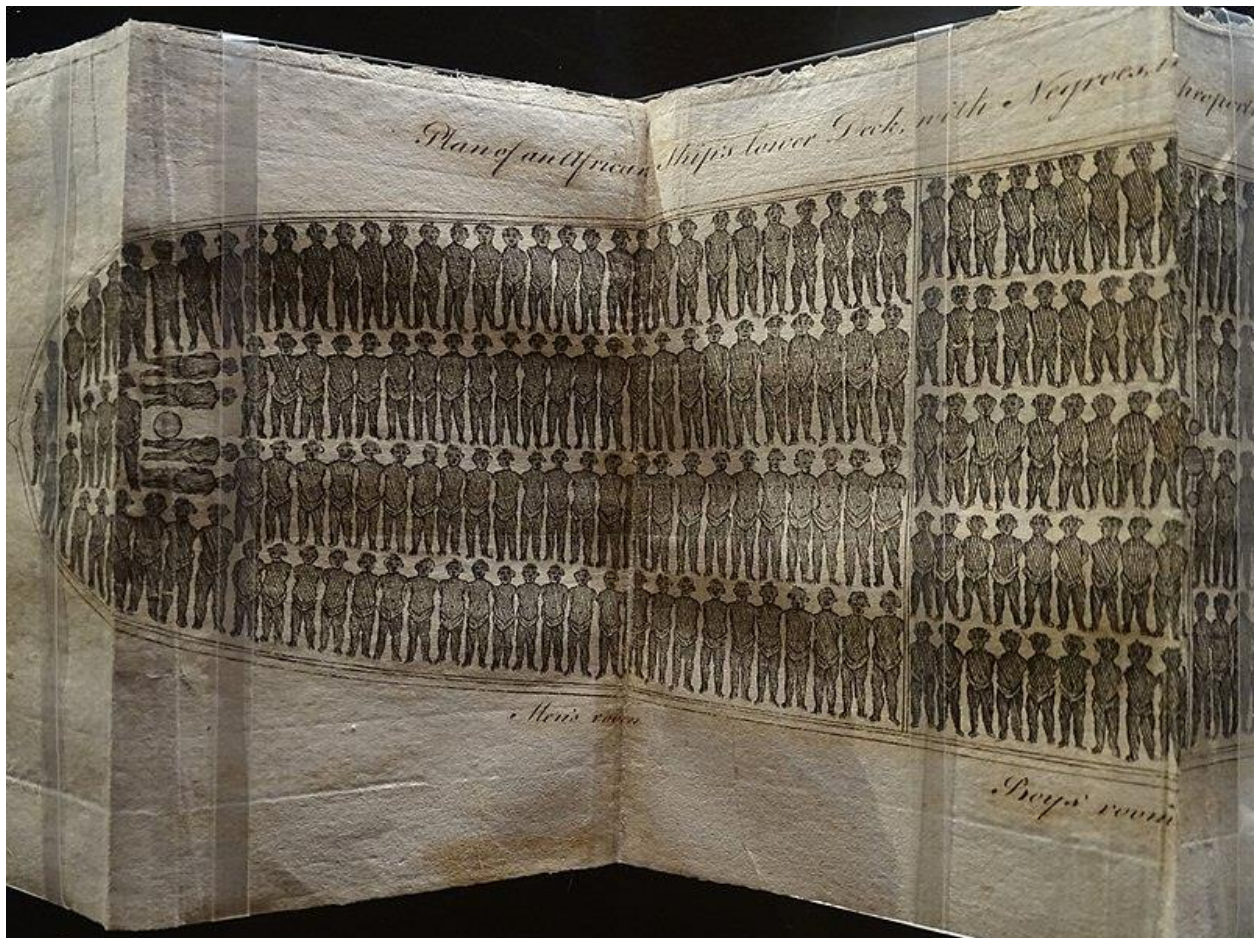 Plan of an African Ship's lower Deck, with Negroes,
Men's room
Boys' room